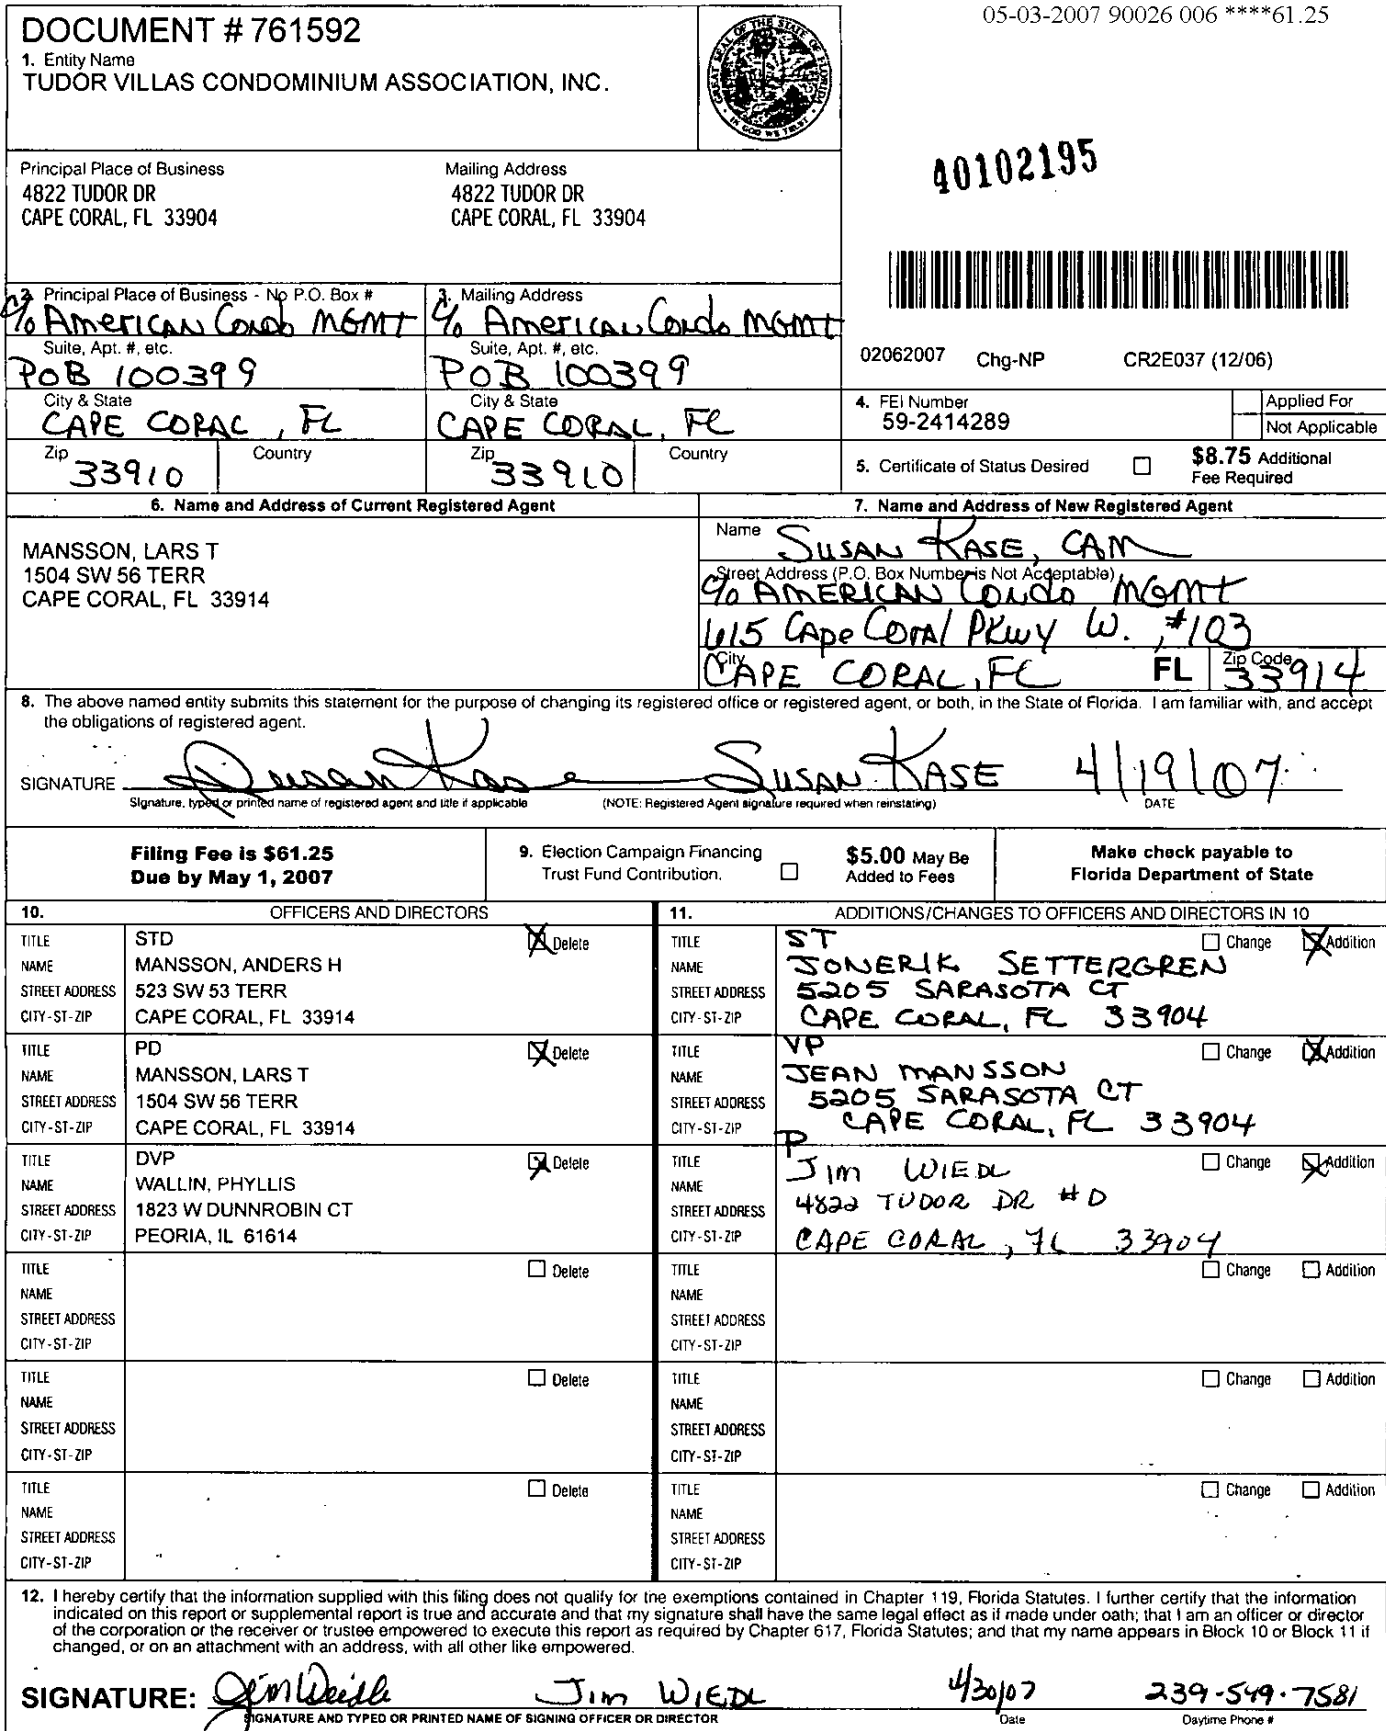 05-03-2007 90026 006 ****61.25
DOCUMENT # 761592
1. Entity Name
TUDOR VILLAS CONDOMINIUM ASSOCIATION, INC.
GREAT SEAL OF THE STATE OF FLORIDA
IN GOD WE TRUST
40102195
Principal Place of Business
4822 TUDOR DR
CAPE CORAL, FL 33904
Mailing Address
4822 TUDOR DR
CAPE CORAL, FL 33904
2. Principal Place of Business - No P.O. Box #
c/o American Condo MGMT
Suite, Apt. #, etc.
POB 100399
City & State
CAPE CORAL, FL
Zip
33910
Country
3. Mailing Address
c/o American Condo MGMT
Suite, Apt. #, etc.
POB 100399
City & State
CAPE CORAL, FL
Zip
33910
Country
02062007 Chg-NP CR2E037 (12/06)
4. FEI Number
59-2414289
Applied For
Not Applicable
5. Certificate of Status Desired
$8.75 Additional
Fee Required
6. Name and Address of Current Registered Agent
MANSSON, LARS T
1504 SW 56 TERR
CAPE CORAL, FL 33914
7. Name and Address of New Registered Agent
Name SUSAN KASE, CAM
Street Address (P.O. Box Number is Not Acceptable)
c/o AMERICAN Condo MGMT
615 Cape Coral PKWY W., #103
City
CAPE CORAL, FL FL Zip Code 33914
8. The above named entity submits this statement for the purpose of changing its registered office or registered agent, or both, in the State of Florida. I am familiar with, and accept
the obligations of registered agent.
SIGNATURE Susan Kase SUSAN KASE 4/19/07
Signature, typed or printed name of registered agent and title if applicable (NOTE: Registered Agent signature required when reinstating) DATE
Filing Fee is $61.25
Due by May 1, 2007
9. Election Campaign Financing
Trust Fund Contribution.
$5.00 May Be
Added to Fees
Make check payable to
Florida Department of State
10. OFFICERS AND DIRECTORS
TITLE STD Delete
NAME MANSSON, ANDERS H
STREET ADDRESS 523 SW 53 TERR
CITY-ST-ZIP CAPE CORAL, FL 33914
TITLE PD Delete
NAME MANSSON, LARS T
STREET ADDRESS 1504 SW 56 TERR
CITY-ST-ZIP CAPE CORAL, FL 33914
TITLE DVP Delete
NAME WALLIN, PHYLLIS
STREET ADDRESS 1823 W DUNNROBIN CT
CITY-ST-ZIP PEORIA, IL 61614
TITLE Delete
NAME
STREET ADDRESS
CITY-ST-ZIP
TITLE Delete
NAME
STREET ADDRESS
CITY-ST-ZIP
TITLE Delete
NAME
STREET ADDRESS
CITY-ST-ZIP
11. ADDITIONS/CHANGES TO OFFICERS AND DIRECTORS IN 10
TITLE ST Change Addition
NAME JONERIK SETTERGREN
STREET ADDRESS 5205 SARASOTA CT
CITY-ST-ZIP CAPE CORAL, FL 33904
TITLE VP Change Addition
NAME JEAN MANSSON
STREET ADDRESS 5205 SARASOTA CT
CITY-ST-ZIP CAPE CORAL, FL 33904
TITLE P Change Addition
NAME Jim WIEDL
STREET ADDRESS 4822 TUDOR DR #D
CITY-ST-ZIP CAPE CORAL, FL 33904
TITLE Change Addition
NAME
STREET ADDRESS
CITY-ST-ZIP
TITLE Change Addition
NAME
STREET ADDRESS
CITY-ST-ZIP
TITLE Change Addition
NAME
STREET ADDRESS
CITY-ST-ZIP
12. I hereby certify that the information supplied with this filing does not qualify for the exemptions contained in Chapter 119, Florida Statutes. I further certify that the information
indicated on this report or supplemental report is true and accurate and that my signature shall have the same legal effect as if made under oath; that I am an officer or director
of the corporation or the receiver or trustee empowered to execute this report as required by Chapter 617, Florida Statutes; and that my name appears in Block 10 or Block 11 if
changed, or on an attachment with an address, with all other like empowered.
SIGNATURE: Jim Weidl Jim WIEDL 4/30/07 239-549-7581
SIGNATURE AND TYPED OR PRINTED NAME OF SIGNING OFFICER OR DIRECTOR Date Daytime Phone #